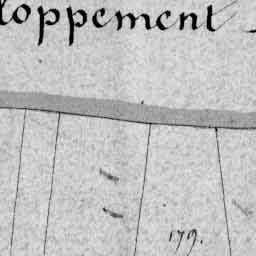 loppement
179.